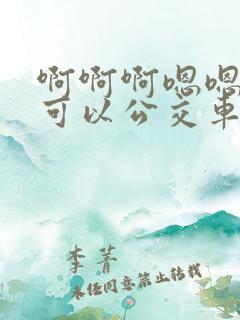 啊啊啊嗯嗯
可以公交车
李菁
未经同意禁止转载